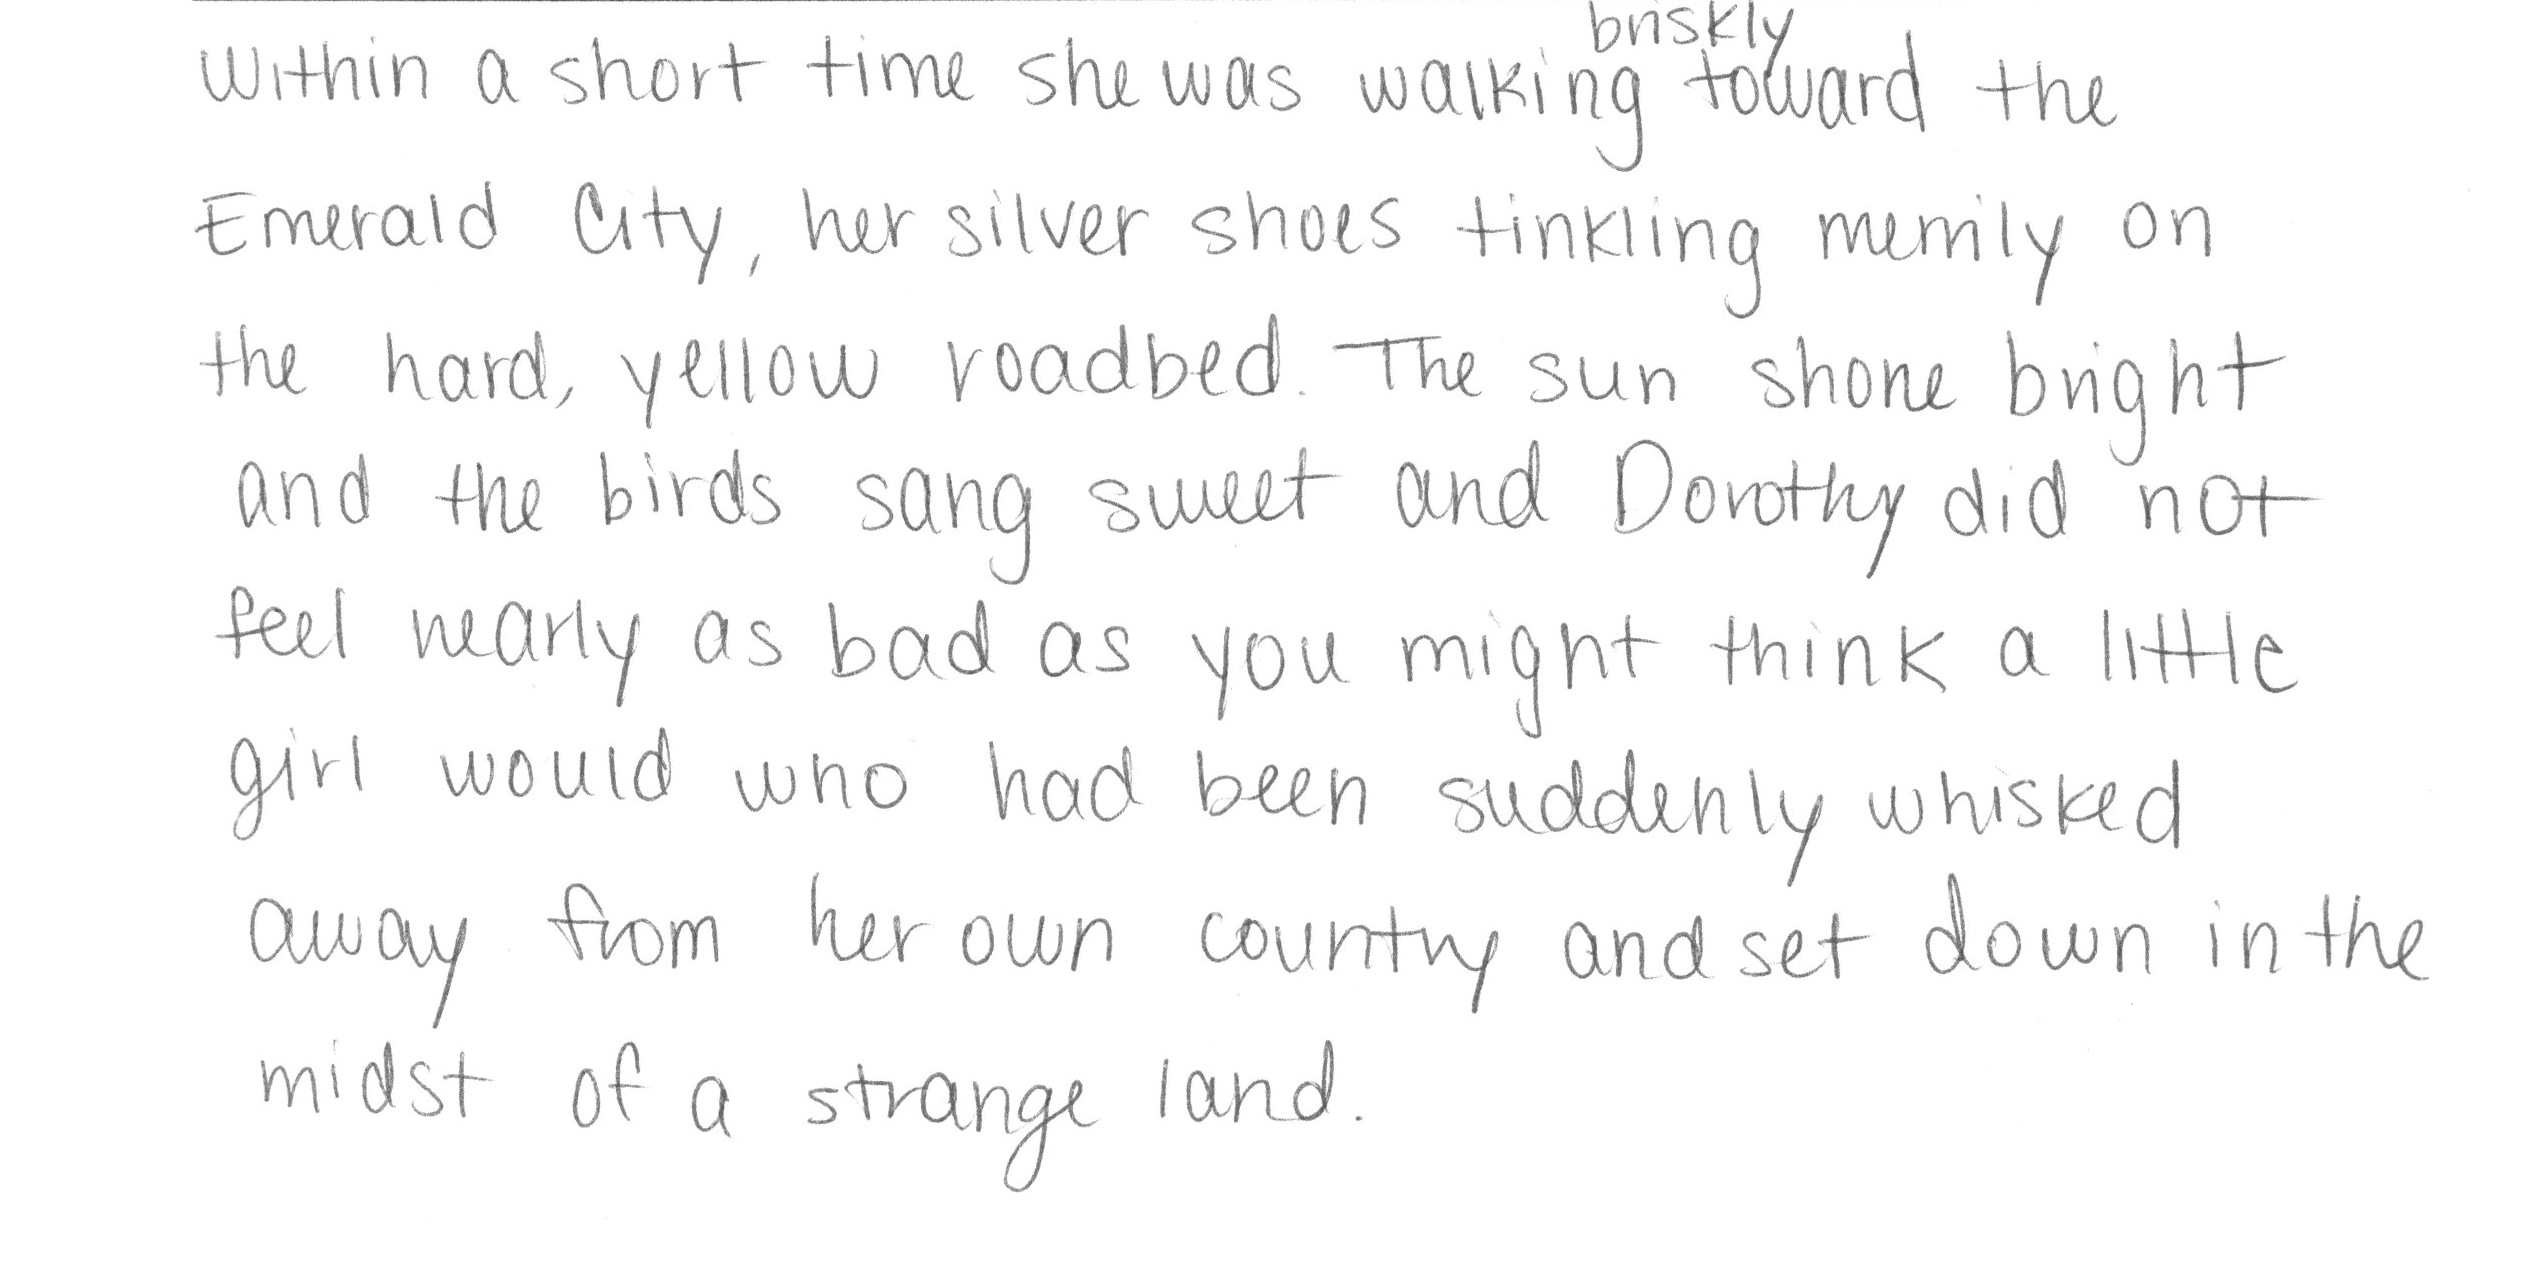 briskly
Within a short time she was walking toward the
Emerald City, her silver shoes tinkling merrily on
the hard, yellow roadbed. The sun shone bright
and the birds sang sweet and Dorothy did not
feel nearly as bad as you might think a little
girl would who had been suddenly whisked
away from her own country and set down in the
midst of a strange land.